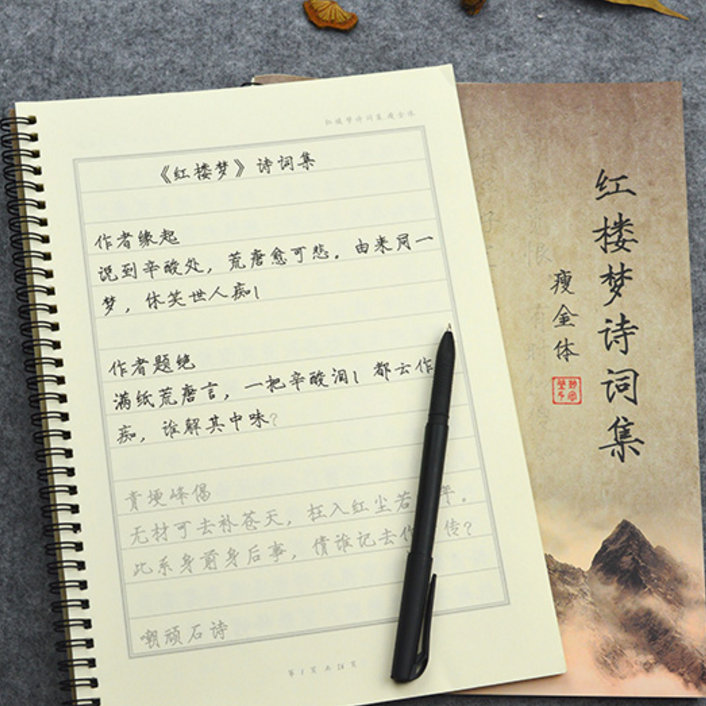 红楼梦诗词集瘦金体
《红楼梦》诗词集
作者缘起
说到辛酸处，荒唐愈可悲。由来同一
梦，休笑世人痴！
作者题绝
满纸荒唐言，一把辛酸泪！都云作
痴，谁解其中味？
青埂峰偈
无材可去补苍天，枉入红尘若 年。
此系身前身后事，倩谁记去作 传？
嘲顽石诗
第1页 共78页
红楼梦诗词集
瘦金体